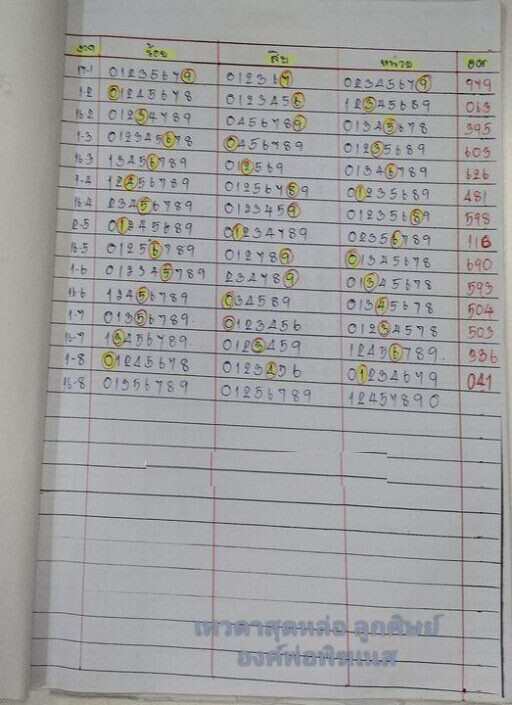 งวด ร้อย สิบ หน่วย ออก
17-1 01235679 012367 02345679 979
1-2 01245678 0123456 12345689 063
16-2 01234789 0456789 01345678 395
1-3 012345678 0456789 01235689 603
16-3 13456789 012569 01346789 626
2-4 12456789 01256789 01235689 481
16-4 23456789 0123459 01235689 598
2-5 01345689 01234789 02356789 116
16-5 01256789 012789 01345678 690
1-6 012345789 234789 01345689 593
16-6 12456789 034589 01345678 504
1-7 01356789 0123456 01234578 503
16-7 13456789 0123459 12456789 336
1-8 01245678 0123456 01234679 041
16-8 01356789 01256789 12457890
เทวดาสุดหล่อ ลูกศิษย์
องค์พ่อพิฆเนส